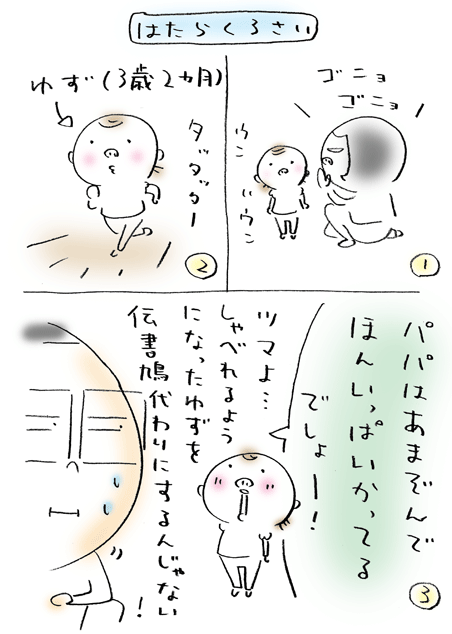 はたらく3さい
ゴニョ
ゴニョ
ウン
ウン
1
ゆず(3歳2ヵ月)
タッタッター
2
パパはあまぞんで
ほんいっぱいかってる
でしょー!
ツマよ…
しゃべれるよう
になったゆずを
伝書鳩代わりにするんじゃない!
3